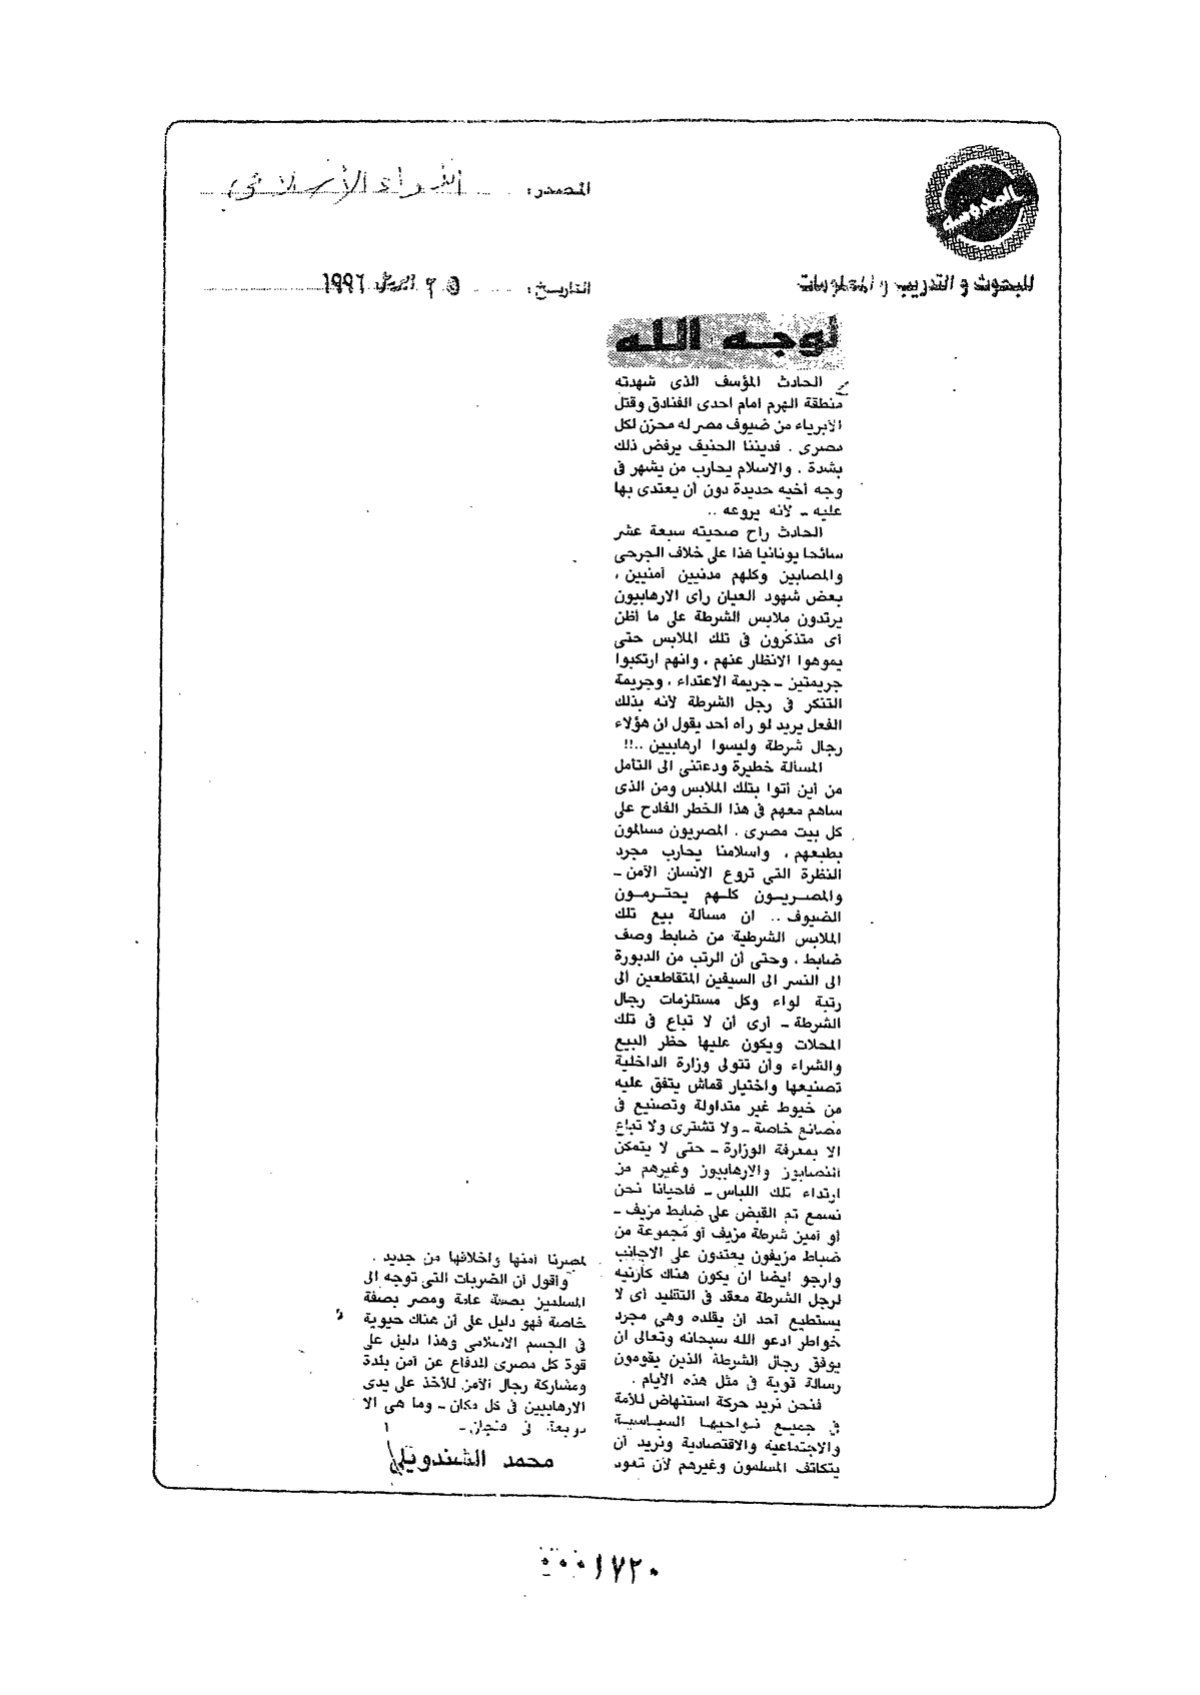 المدوسه
للبحوث و التدريب و المعلومات
المصدر: اللواء الإسلامي
التاريخ: ٢٥ ابريل ١٩٩٦
لوجه الله
الحادث المؤسف الذى شهدته
منطقة الهرم امام احدى الفنادق وقتل
الأبرياء من ضيوف مصر له محزن لكل
مصرى . فديننا الحنيف يرفض ذلك
بشدة . والاسلام يحارب من يشهر فى
وجه أخيه حديدة دون أن يعتدى بها
عليه ـ لانه يروعه ..
الحادث راح ضحيته سبعة عشر
سائحا يونانيا هذا على خلاف الجرحى
والمصابين وكلهم مدنيين آمنيين ،
بعض شهود العيان رأى الارهابيون
يرتدون ملابس الشرطة على ما أظن
أى متذكرون فى تلك الملابس حتى
يموهوا الانظار عنهم ، وانهم ارتكبوا
جريمتين ـ جريمة الاعتداء ، وجريمة
التنكر فى رجل الشرطة لأنه بذلك
الفعل يريد لو رآه أحد يقول ان هؤلاء
رجال شرطة وليسوا ارهابيين ..!!
المسألة خطيرة ودعتنى الى التأمل
من أين أتوا بتلك الملابس ومن الذى
ساهم معهم فى هذا الخطر الفادح على
كل بيت مصرى . المصريون مسالمون
بطبعهم ، واسلامنا يحارب مجرد
النظرة التى تروع الانسان الآمن ـ
والمصريون كلهم يحترمون
الضيوف .. ان مسألة بيع تلك
الملابس الشرطية من ضابط وصف
ضابط ، وحتى أن الرتب من الدبورة
الى النسر الى السيفين المتقاطعين الى
رتبة لواء وكل مستلزمات رجال
الشرطة ـ أرى أن لا تباع فى تلك
المحلات ويكون عليها حظر البيع
والشراء وأن تتولى وزارة الداخلية
تصنيعها واختيار قماش يتفق عليه
من خيوط غير متداولة وتصنيع فى
مصانع خاصة ـ ولا تشترى ولا تباع
الا بمعرفة الوزارة ـ حتى لا يتمكن
النصابون والارهابيون وغيرهم من
ارتداء تلك اللباس ـ فاحيانا نحن
نسمع تم القبض على ضابط مزيف ـ
أو أمين شرطة مزيف أو مجموعة من
ضباط مزيفون يعتدون على الاجانب
وارجو ايضا ان يكون هناك كارنيه
لرجل الشرطة معقد فى التقليد أى لا
يستطيع أحد ان يقلده وهى مجرد
خواطر ادعو الله سبحانه وتعالى ان
يوفق رجال الشرطة الذين يقومون
رسالة قوية فى مثل هذه الأيام .
فنحن نريد حركة استنهاض للأمة
فى جميع نواحيها السياسية
والاجتماعية والاقتصادية ونريد أن
يتكاتف المسلمون وغيرهم لأن تعود
لمصرنا أمنها وأخلاقها من جديد .
وأقول أن الضربات التى توجه الى
المسلمين بصفة عامة ومصر بصفة
خاصة فهو دليل على أن هناك حيوية
فى الجسم الاسلامى وهذا دليل على
قوة كل مصرى للدفاع عن أمن بلدة
ومشاركة رجال الأمن للأخذ على يدى
الارهابيين فى كل مكان ـ وما هى الا
زوبعة فى فنجان ـ
محمد الشندويلى
٠٠٠١٧٢٠